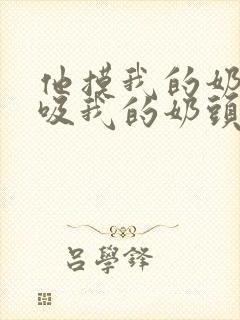 他摸我的奶
吸我的奶頭
吕學鋒